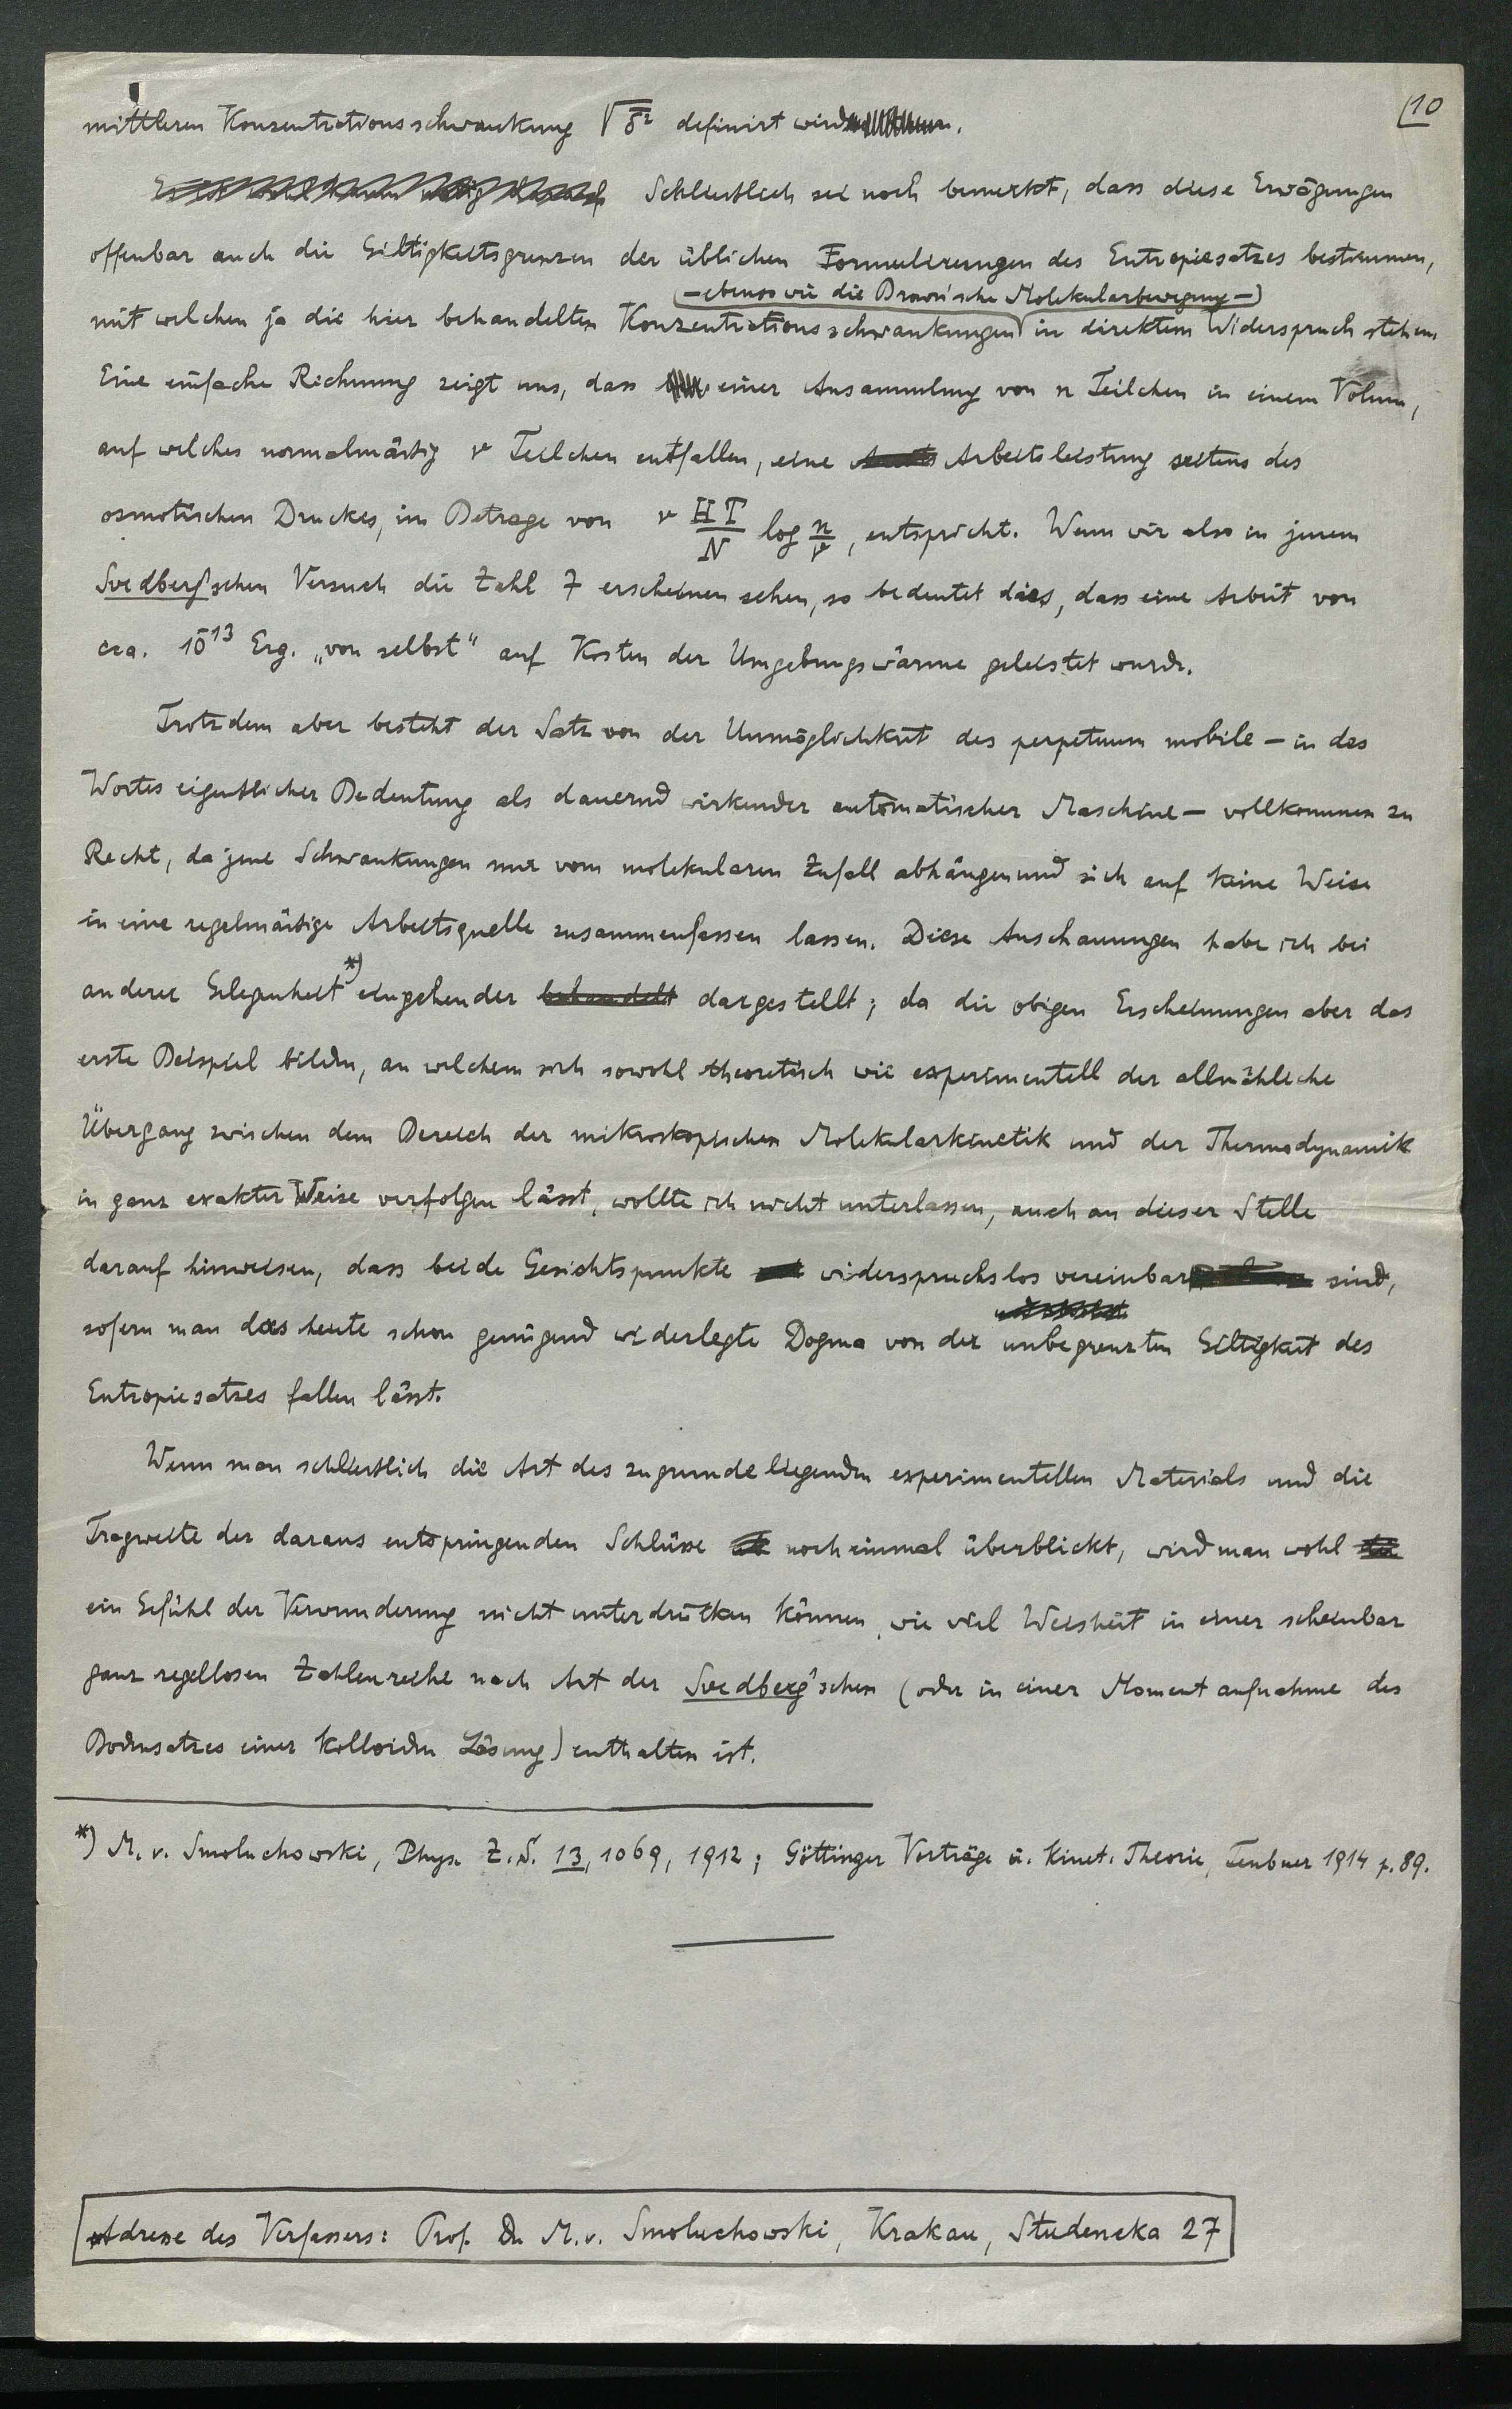 10
mittleren Konzentrationsschwankung √δ̄² definirt wird.
Schliesslich sei noch bemerkt, dass diese Erwägungen
offenbar auch die Giltigkeitsgrenzen der üblichen Formulierungen des Entropiesatzes bestimmen,
— ebenso wie die Brown'sche Molekularbewegung —
mit welchen ja die hier behandelten Konzentrationsschwankungen in direktem Widerspruch stehen.
Eine einfache Rechnung zeigt uns, dass einer Ansammlung von n Teilchen in einem Volum,
auf welches normalmässig ν Teilchen entfallen, eine Arbeitsleistung seitens des
osmotischen Druckes, im Betrage von ν HT/N log n/ν, entspricht. Wenn wir also in jenem
Svedberg'schen Versuch die Zahl 7 erscheinen sehen, so bedeutet dies, dass eine Arbeit von
cca. 10⁻¹³ Erg. „von selbst“ auf Kosten der Umgebungswärme geleistet wurde.
Trotzdem aber besteht der Satz von der Unmöglichkeit des perpetuum mobile — in des
Wortes eigentlicher Bedeutung als dauernd wirkender automatischer Maschine — vollkommen zu
Recht, da jene Schwankungen nur vom molekularen Zufall abhängen und sich auf keine Weise
in eine regelmässige Arbeitsquelle zusammenfassen lassen. Diese Anschauungen habe ich bei
anderer Gelegenheit*) eingehender behandelt dargestellt; da die obigen Erscheinungen aber das
erste Beispiel bilden, an welchem sich sowohl theoretisch wie experimentell der allmähliche
Übergang zwischen dem Bereich der mikroskopischen Molekularkinetik und der Thermodynamik
in ganz exakter Weise verfolgen lässt, wollte ich nicht unterlassen, auch an dieser Stelle
darauf hinweisen, dass beide Gesichtspunkte widerspruchslos vereinbar sind,
sofern man das heute schon genügend widerlegte Dogma von der unbegrenzten Giltigkeit des
Entropiesatzes fallen lässt.
Wenn man schliesslich die Art des zugrunde liegenden experimentellen Materials und die
Tragweite der daraus entspringenden Schlüsse noch einmal überblickt, wird man wohl
ein Gefühl der Verwunderung nicht unterdrücken können, wie viel Weisheit in einer scheinbar
ganz regellosen Zahlenreihe nach Art der Svedberg'schen (oder in einer Momentaufnahme des
Bodensatzes einer kolloiden Lösung) enthalten ist.
*) M. v. Smoluchowski, Phys. Z.S. 13, 1069, 1912; Göttinger Vorträge ü. kinet. Theorie, Teubner 1914 p. 89.
Adresse des Verfassers: Prof. Dr M. v. Smoluchowski, Krakau, Studencka 27